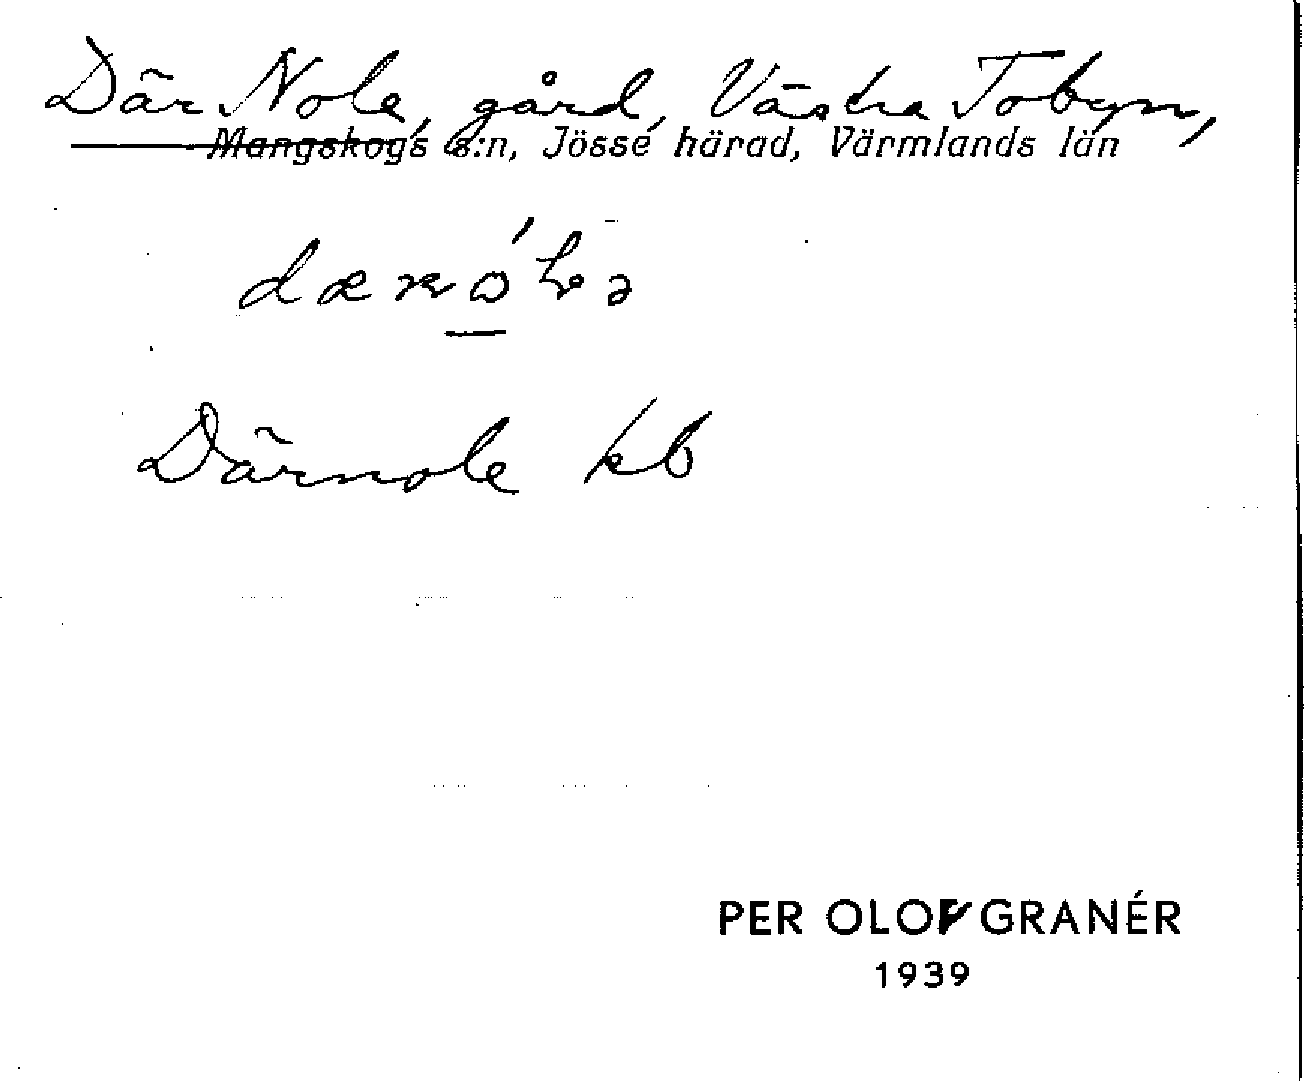 Där Nole, gård, Västra Tobyn,
Mangskogs s:n, Jösse härad, Värmlands län
Därnole kb
PER OLOF GRANÉR
1939